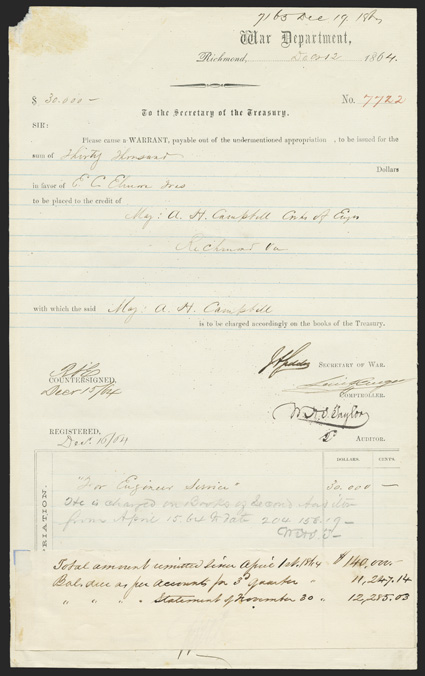 7165 Dec 19 1864
War Department,
Richmond, Decr 12 1864.
$ 30.000 — No. 7722
To the Secretary of the Treasury.
SIR:
Please cause a WARRANT, payable out of the undermentioned appropriation , to be issued for the
sum of Thirty Thousand
Dollars
in favor of E C Elmore Tres
to be placed to the credit of
Maj: A. H. Campbell Corps of Engrs
Richmond Va
with which the said Maj: A. H. Campbell
is to be charged accordingly on the books of the Treasury.
SECRETARY OF WAR.
COUNTERSIGNED,
Decr 15/64
COMPTROLLER.
W. H. S. Taylor
REGISTERED,
Decr 16/64
AUDITOR.
DOLLARS. CENTS.
"For Engineer Service" 30.000 —
He is charged on Books of Second Auditor
from April 15.64 to date 204.158.19 —
RIATION.
Total amount remitted since April 1st 1864 $ 140,000.
Balance as per Accounts for 3d quarter " 11,247.14
" " " " Statement of November 30 " 12,285.03